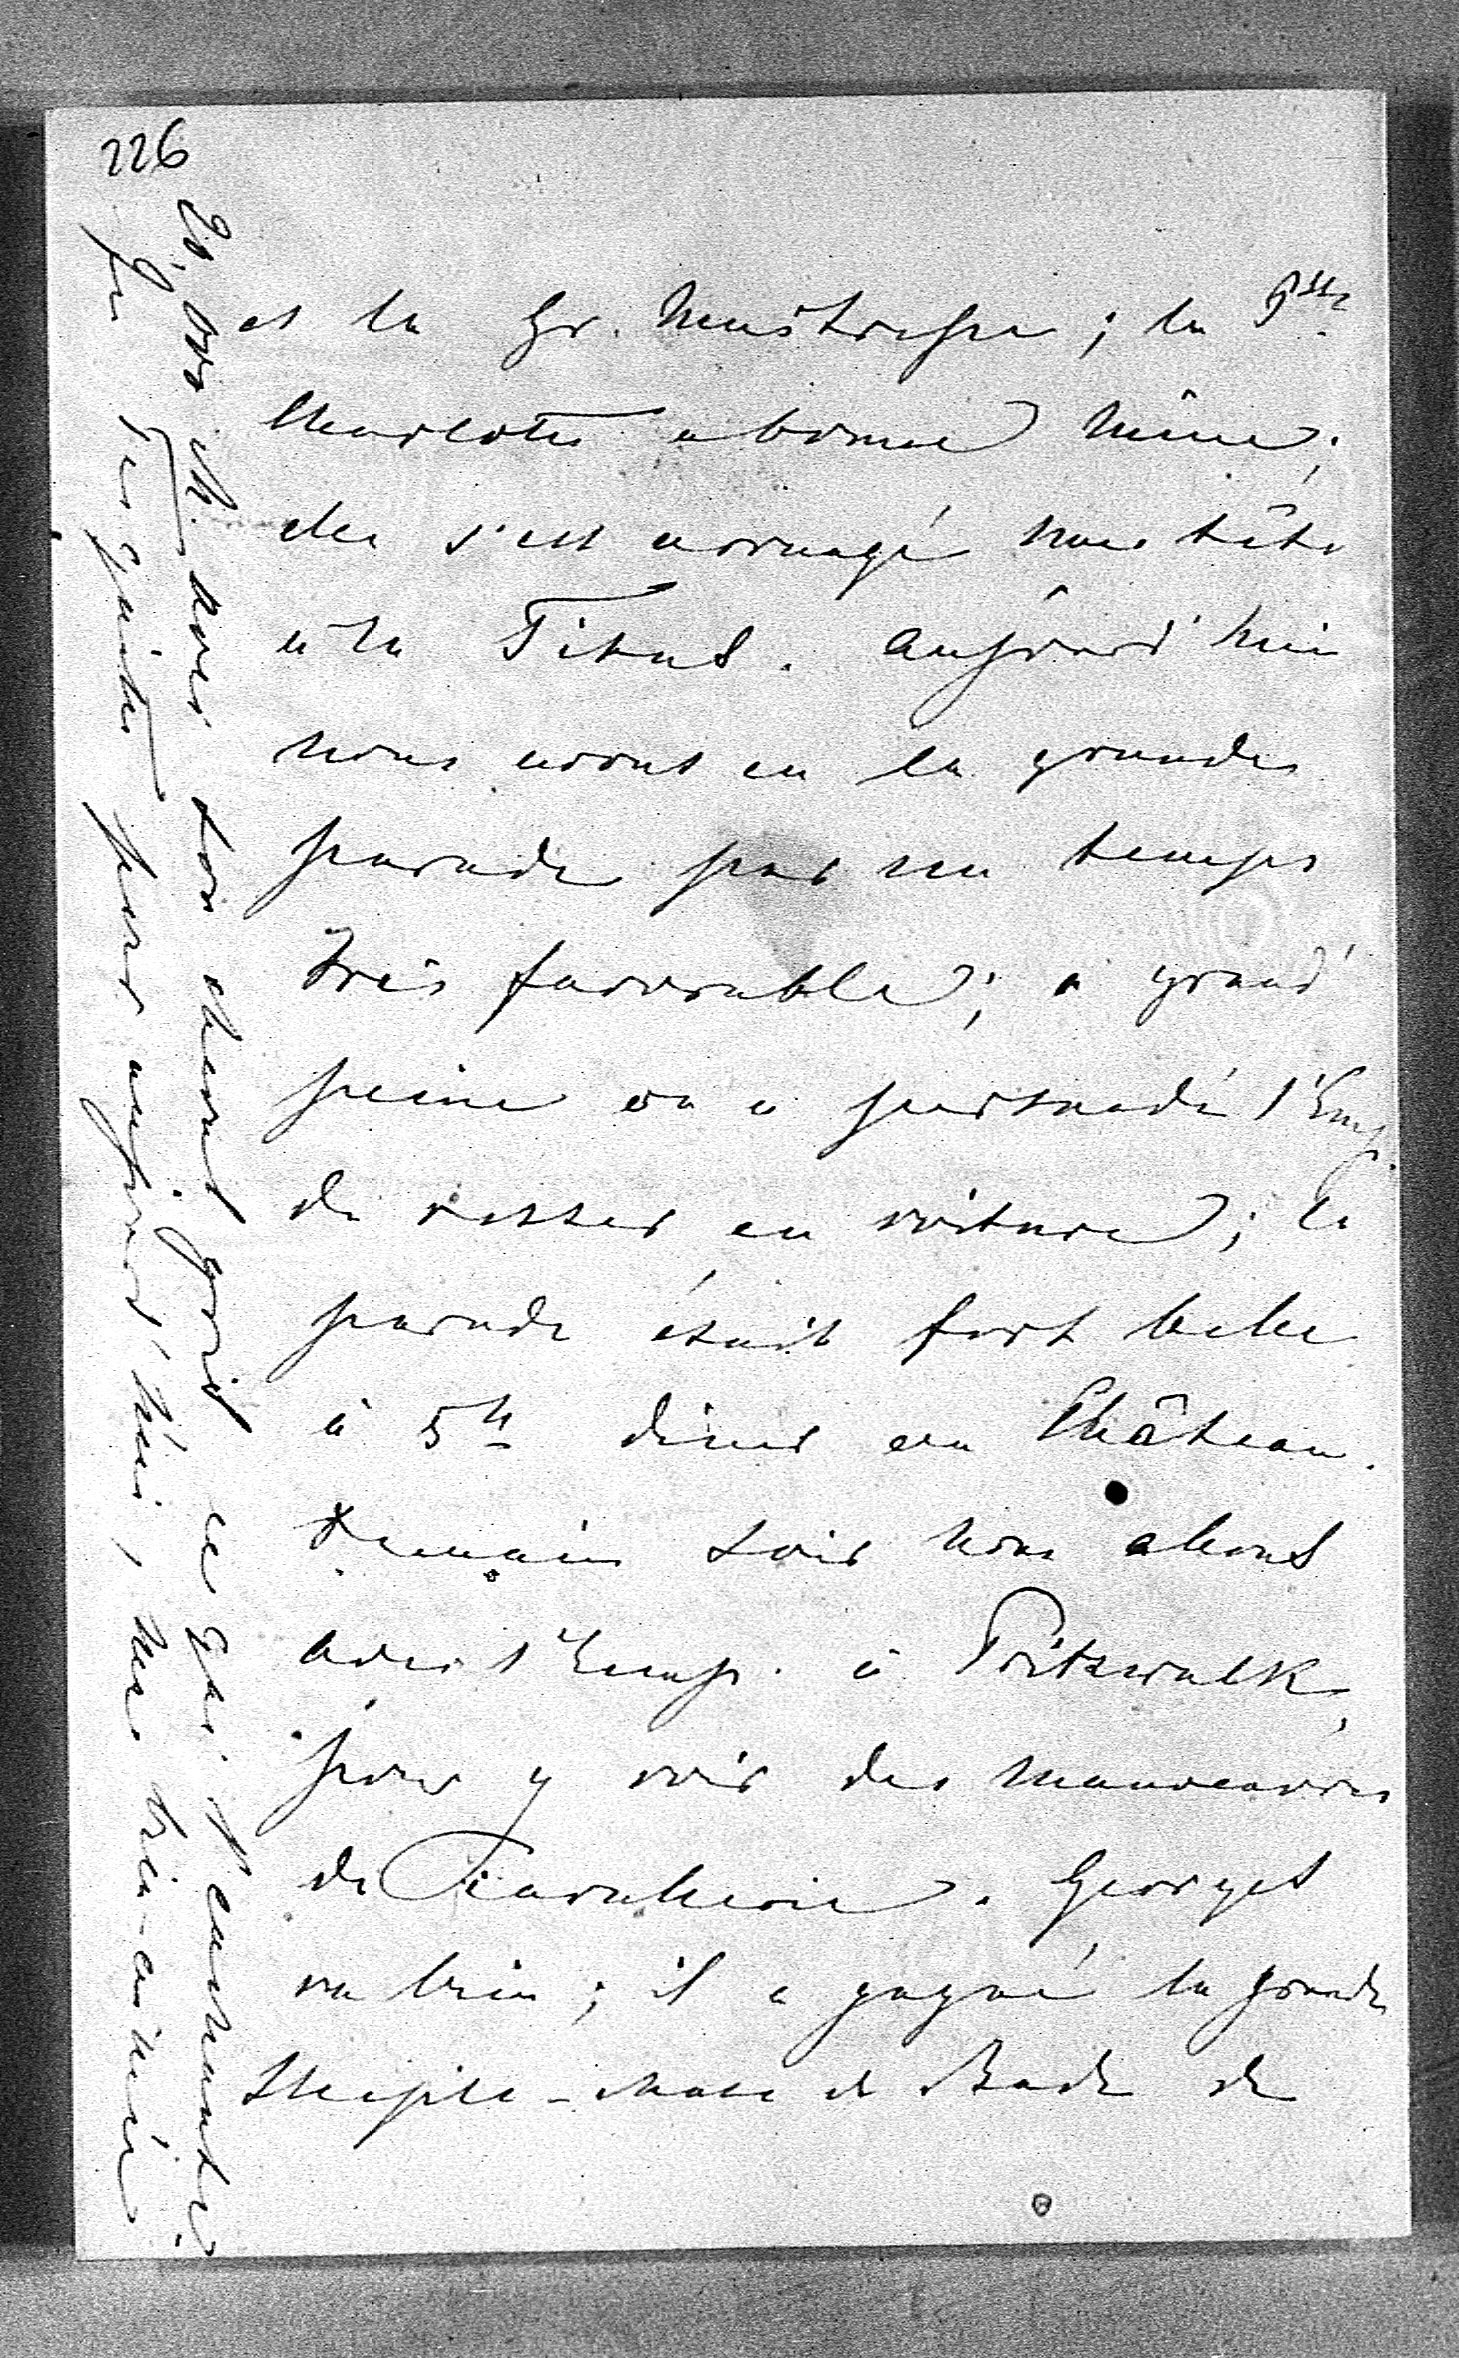 226
et la Gr. Maitresse ; la Psse
Charlotte a bonne mine ;
elle s'est arrangé une tête
à la Titus. aujourd'hui
nous avons eu la grande
parade par un temps
très favorable ; a grand'
peine on a persuadé l'Emp.
de rester en voiture ; la
parade était fort belle
à 5h diner au Château.
Demain soir nous allons
avec l'Emp. à Pritzwalk,
pour y voir des manoeuvres
de Cavallerie. Georges
va bien ; il a gagné la grande
Steeple-chase de Bade de
aujourd'hui, ma bien-aimée